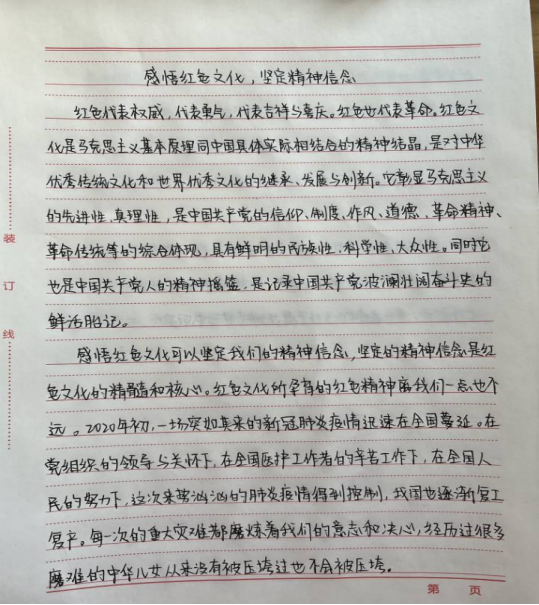 感悟红色文化，坚定精神信念
红色代表权威，代表勇气，代表吉祥与喜庆。红色也代表革命。红色文
化是马克思主义基本原理同中国具体实际相结合的精神结晶，是对中华
优秀传统文化和世界优秀文化的继承、发展与创新。它彰显马克思主义
的先进性、真理性，是中国共产党的信仰、制度、作风、道德、革命精神、
革命传统等的综合体现，具有鲜明的民族性、科学性、大众性。同时它
也是中国共产党人的精神摇篮，是记录中国共产党波澜壮阔奋斗史的
鲜活胎记。
感悟红色文化可以坚定我们的精神信念，坚定的精神信念是红
色文化的精髓和核心。红色文化所孕育的红色精神离我们一点也不
远。2020年初，一场突如其来的新冠肺炎疫情迅速在全国蔓延。在
党组织的领导与关怀下，在全国医护工作者的辛苦工作下，在全国人
民的努力下，这次来势汹汹的肺炎疫情得到控制，我国也逐渐复工
复产。每一次的重大灾难都磨炼着我们的意志和决心，经历过很多
磨难的中华儿女从来没有被压垮过也不会被压垮。
装
订
线
第 页